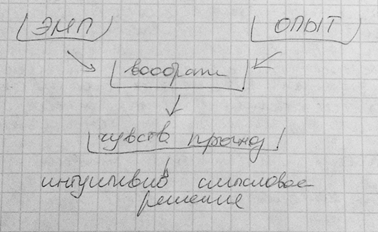 ЭМП ОПЫТ
воображ
чувств
интуитивно смысловое
решение